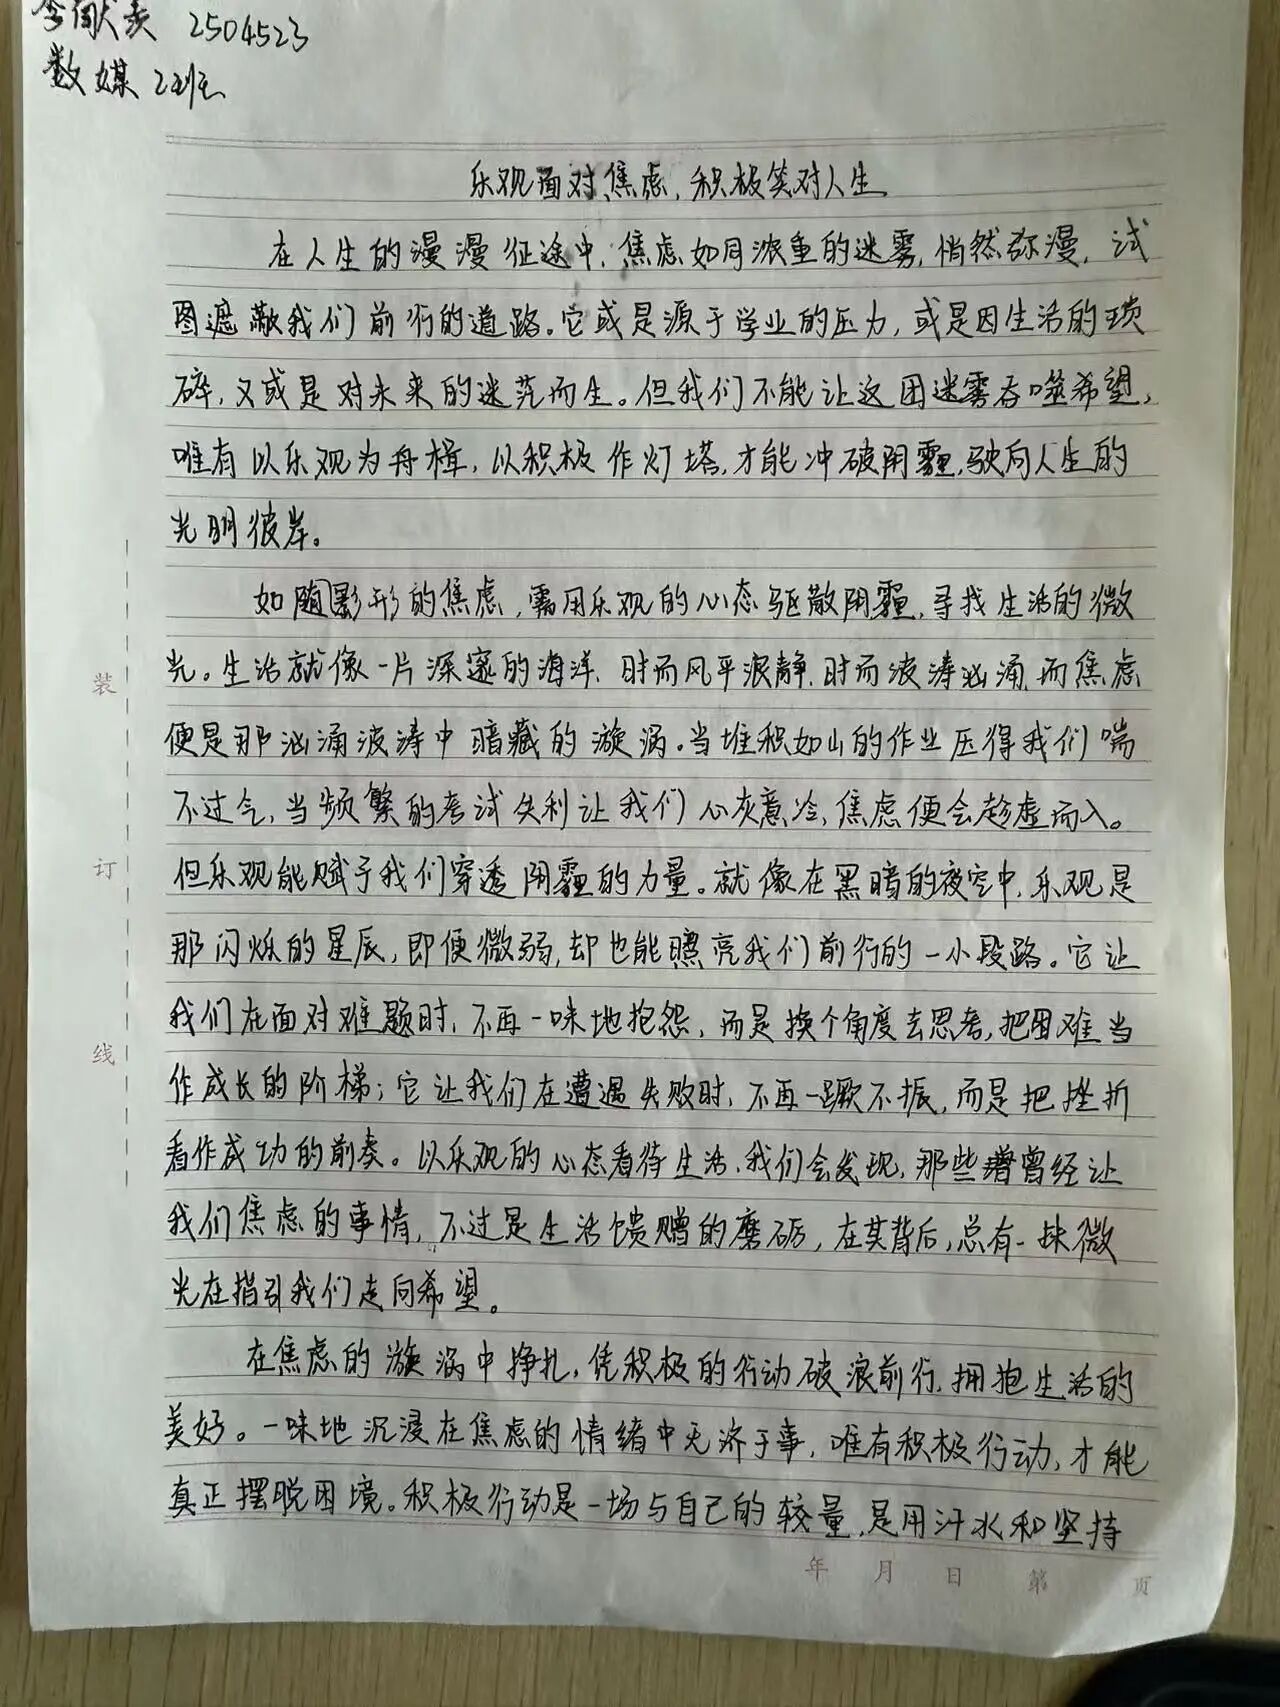 李献 2504523
数媒2班
乐观面对焦虑,积极笑对人生
在人生的漫漫征途中,焦虑如同浓重的迷雾,悄然弥漫,试
图遮蔽我们前行的道路。它或是源于学业的压力,或是因生活的琐
碎,又或是对未来的迷茫而生。但我们不能让这团迷雾吞噬希望,
唯有以乐观为舟楫,以积极作灯塔,才能冲破阴霾,驶向人生的
光明彼岸。
如随影形的焦虑,需用乐观的心态驱散阴霾,寻找生活的微
光。生活就像一片深邃的海洋,时而风平浪静,时而波涛汹涌,而焦虑
便是那汹涌波涛中暗藏的漩涡。当堆积如山的作业压得我们喘
不过气,当频繁的考试失利让我们心灰意冷,焦虑便会趁虚而入。
但乐观能赋予我们穿透阴霾的力量。就像在黑暗的夜空中,乐观是
那闪烁的星辰,即便微弱,却也能照亮我们前行的一小段路。它让
我们在面对难题时,不再一味地抱怨,而是换个角度去思考,把困难当
作成长的阶梯;它让我们在遭遇失败时,不再一蹶不振,而是把挫折
看作成功的前奏。以乐观的心态看待生活,我们会发现,那些曾经让
我们焦虑的事情,不过是生活馈赠的磨砺,在其背后,总有一抹微
光在指引我们走向希望。
在焦虑的漩涡中挣扎,凭积极的行动破浪前行,拥抱生活的
美好。一味地沉浸在焦虑的情绪中无济于事,唯有积极行动,才能
真正摆脱困境。积极行动是一场与自己的较量,是用汗水和坚持
装
订
线
年 月 日 第 页